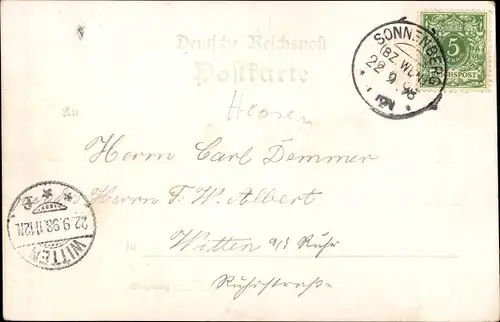 Deutsche Reichspost
Postkarte
SONNENBERG
(BZ.
22 9 98
5
REICHSPOST
Hessen
An
Herrn Carl Demmer
Herren F. W. Albert
in
Witten a/d Ruhr
Ruhrstraße
Wohnung
WITTEN
22.9.98.11-12N.